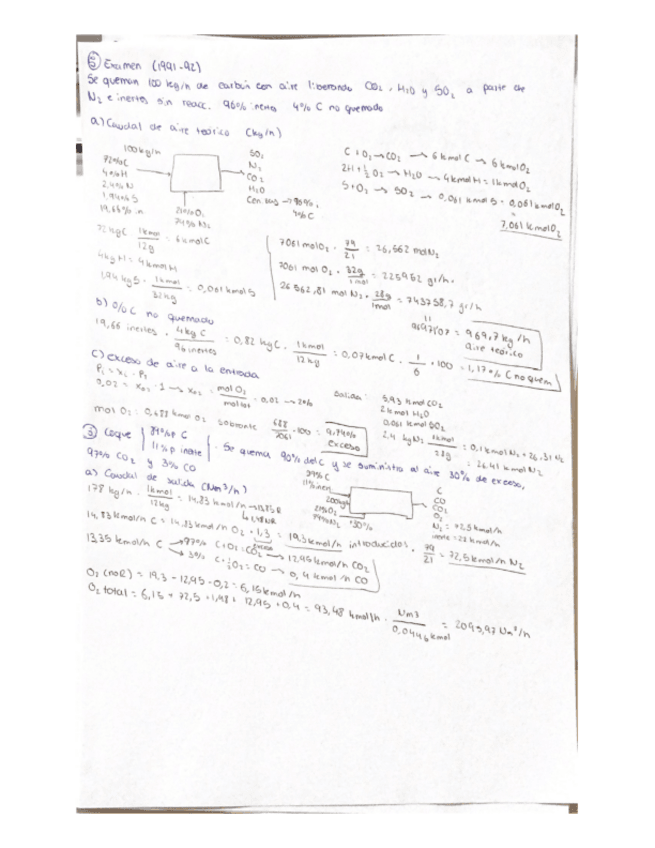 Examen (1991-92)
Se queman 100 kg/h de carbón con aire liberando CO2, H2O y SO2 a parte de
N2 e inertes sin reacc. 96% inertes 4% C no quemado
a) Caudal de aire teórico (kg/h)
100 kg/h
72% C
4% H
2,4% N
1,94% S
19,66% in.
21% O2
79% N2
SO2
N2
CO2
H2O
96%
4% C
C + O2 → CO2 → 6 kmol C → 6 kmol O2
2H + ½ O2 → H2O → 4 kmol H = 1 kmol O2
S + O2 → SO2 → 0,061 kmol S = 0,061 kmol O2
7,061 kmol O2
72 kg C · 1 kmol / 12 g = 6 kmol C
4 kg H = 4 kmol H
1,94 kg S · 1 kmol / 32 kg = 0,061 kmol S
7061 mol O2 · 79 / 21 = 26,562 mol N2
7061 mol O2 · 32 g / 1 mol = 225952 gr/h
26562,81 mol N2 · 28 g / 1 mol = 743758,7 gr/h
= 969,7 kg/h
aire teórico
b) % C no quemado
19,66 inertes · 4 kg C / 96 inertes = 0,82 kg C · 1 kmol / 12 kg = 0,07 kmol C · 1 / 6 · 100 = 1,17% C no quem
c) exceso de aire a la entrada
0,02 = · 1 → = mol O2 / mol tot · 0,02 → 2%
mol O2: 0,688 kmol O2 sobrante 688 / 7061 · 100 = 9,74% exceso
Salida: 5,93 kmol CO2
2 kmol H2O
0,061 kmol SO2
2,4 kg N2 · 1 kmol / 28 g = 0,1 kmol N2 + 26,31 N2
= 26,41 kmol N2
③ Coque 89% p C
11% p inerte
Se quema 90% del C y se suministra al aire 30% de exceso,
97% CO2 y 3% CO
a) Caudal de salida (Nm3/h)
89% C
11% iner
200 kg/h
21% O2
79% N2
30%
C
CO
CO2
O2
N2 = 72,5 kmol/h
178 kg/h · 1 kmol / 12 kg = 14,83 kmol/h → 13,35 R
1,48 NR
14,83 kmol C = 14,83 kmol/h O2 · 1,3 = 19,3 kmol/h introducidos · 79 / 21 = 72,5 kmol/h N2
13,35 kmol/h C → 97% C + O2 = CO2 → 12,95 kmol/h CO2
→ 3% C + ½ O2 = CO → 0,4 kmol/h CO
O2 (no R) = 19,3 - 12,95 - 0,2 = 6,15 kmol/h
O2 total = 6,15 + 72,5 + 1,48 + 12,95 + 0,4 = 93,48 kmol/h · Nm3 / 0,0446 kmol = 2095,97 Nm3/h